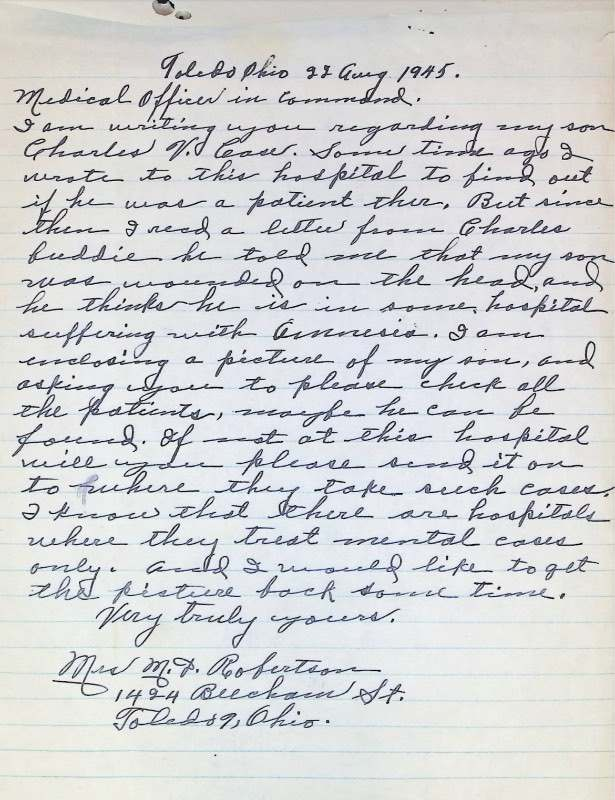 Toledo Ohio 22 Aug 1945.
Medical Officer in Command.
I am writing you regarding my son
Charles V. Case. Some time ago I
wrote to this hospital to find out
if he was a patient ther. But since
then I recd a letter from Charles
buddie he told me that my son
was wounded on the head, and
he thinks he is in some hospital
suffering with Amnesia. I am
enclosing a picture of my son, and
asking you to please check all
the patients, maybe he can be
found. If not at this hospital
will you please send it on
to where they take such cases.
I know that there are hospitals
where they treat mental cases
only. And I would like to get
the picture back some time.
Very truly yours.
Mrs M. D. Robertson
1424 Beecham St.
Toledo 9, Ohio.